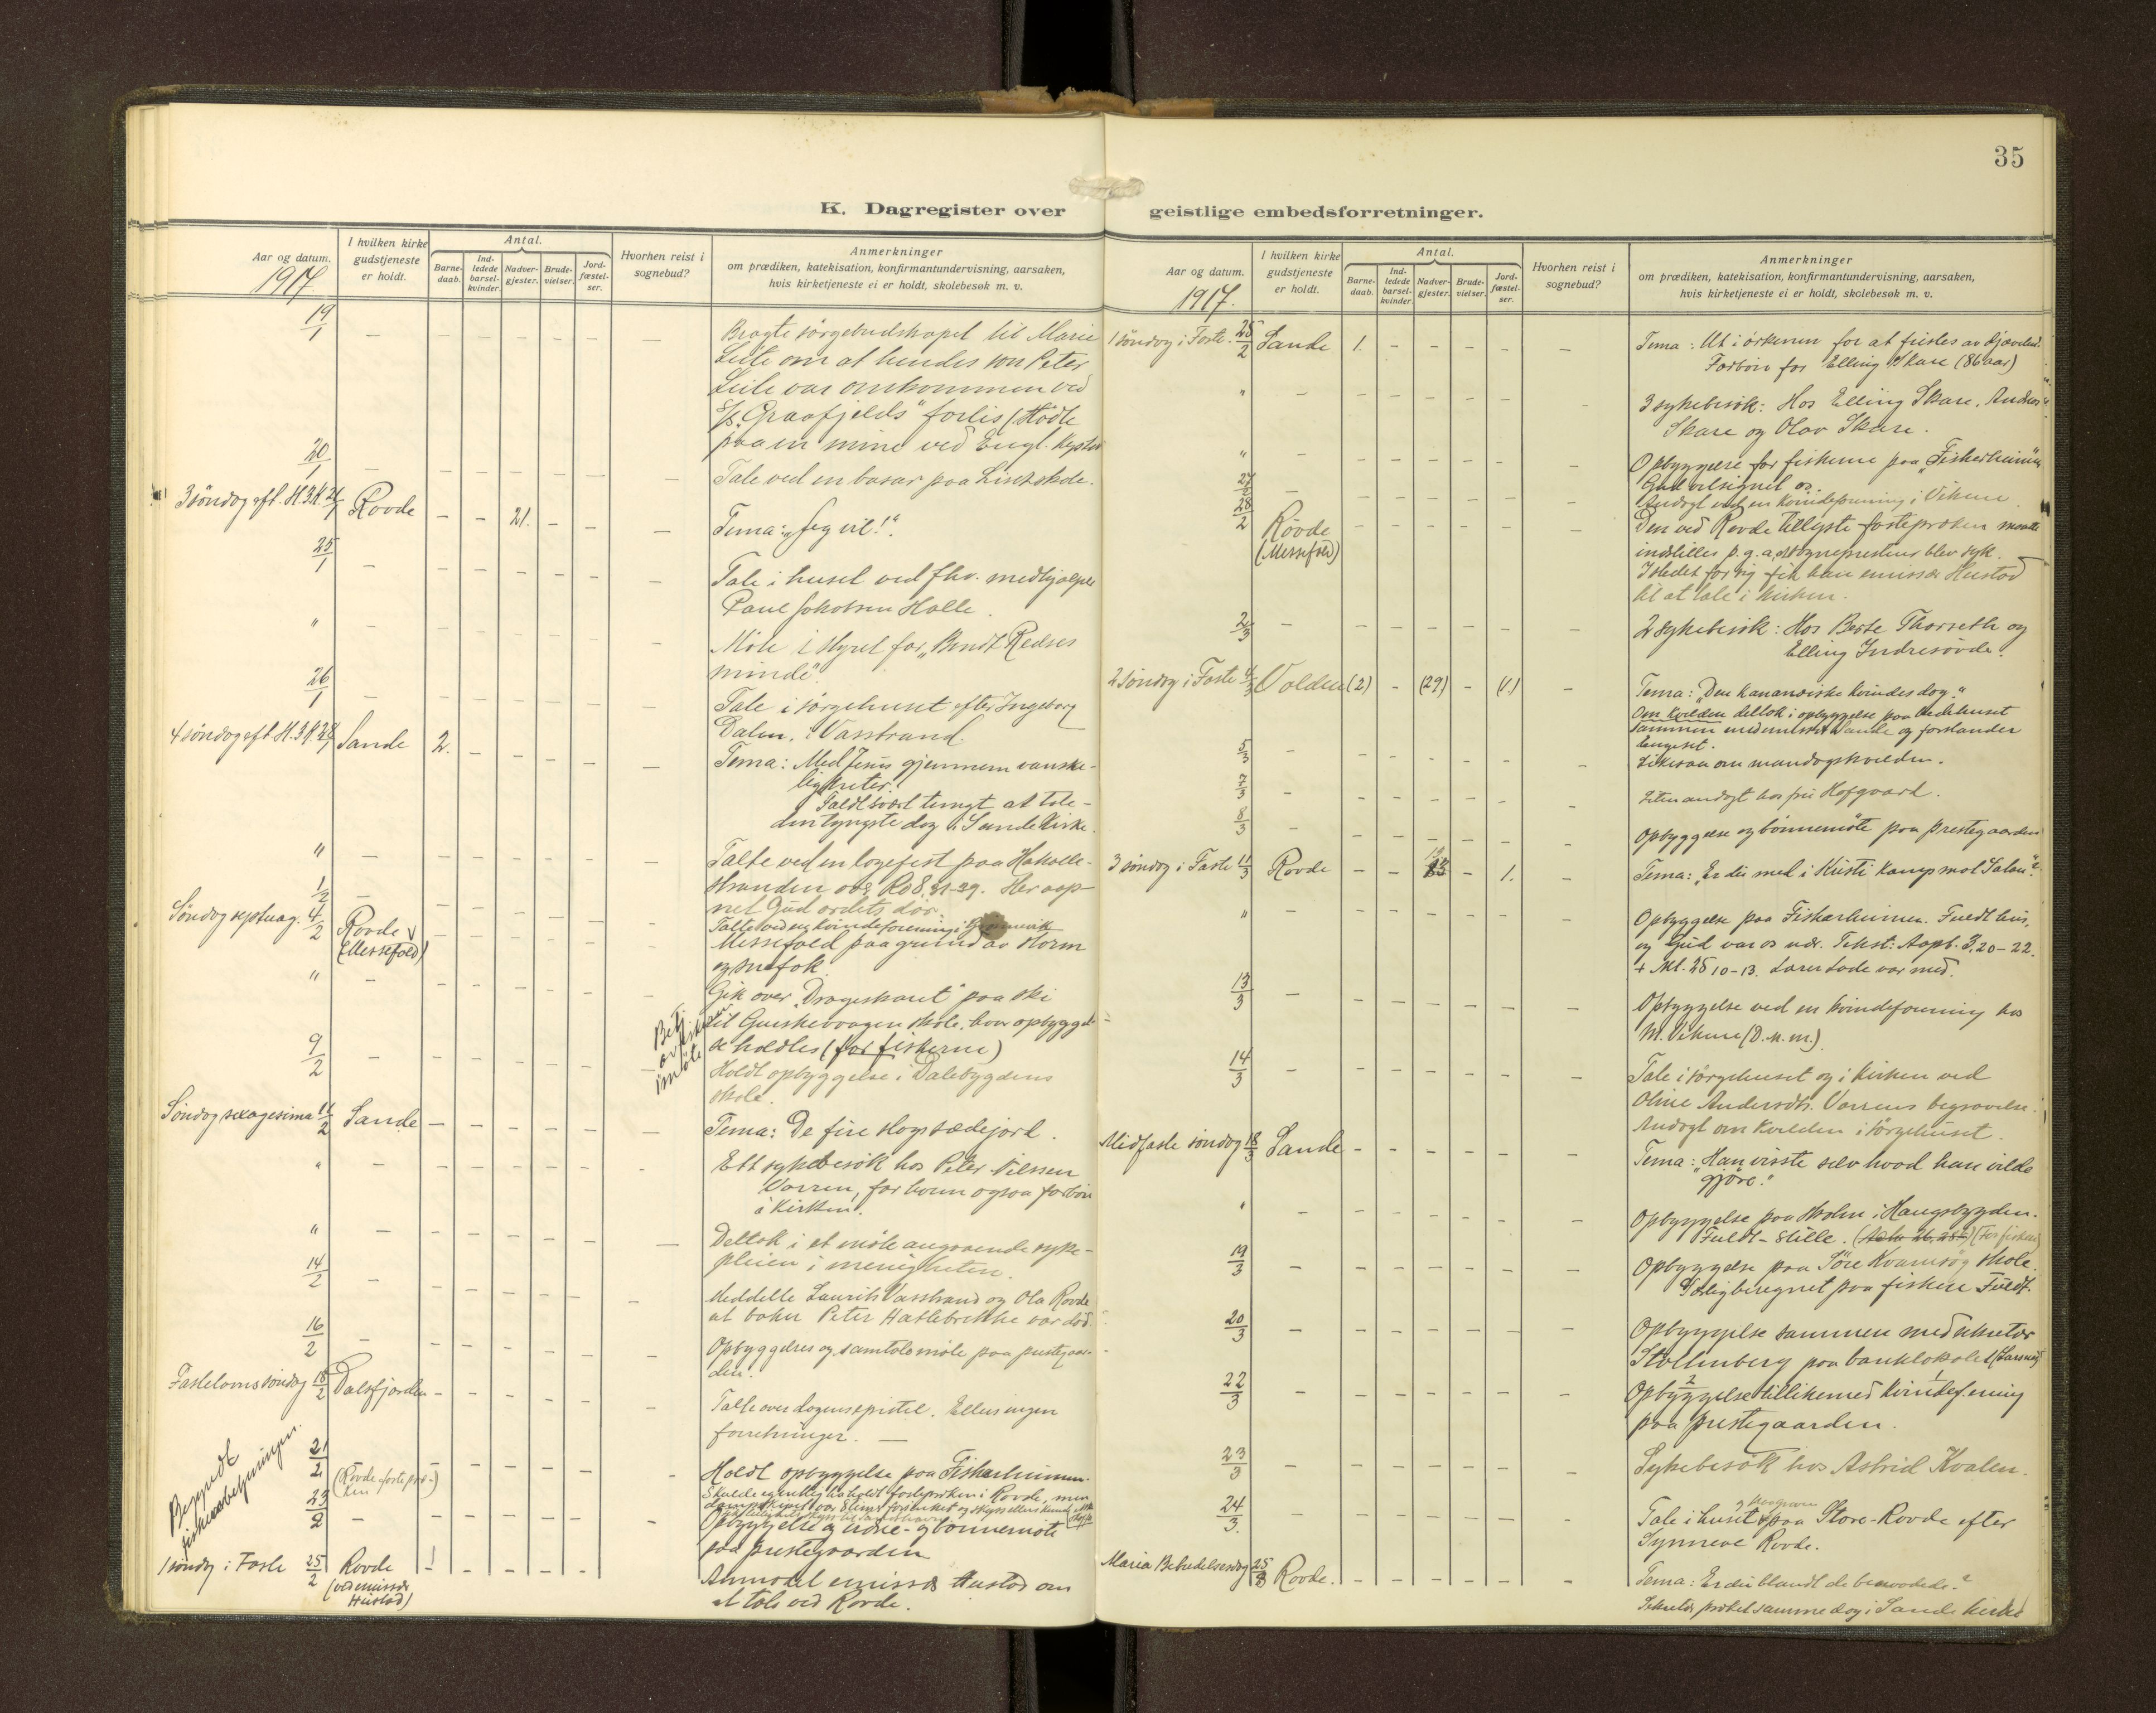 35
K. Dagregister over geistlige embedsforretninger.
Aar og datum.
1917
I hvilken kirke gudstjeneste er holdt.
Antal.
Barnedaab.
Indledede barselkvinder.
Nadvergjester.
Brudevielser.
Jordfæstelser.
Hvorhen reist i sognebud?
Anmerkninger
om prædiken, katekisation, konfirmantundervisning, aarsaken,
hvis kirketjeneste ei er holdt, skolebesøk m. v.
19/1 — — — — — — — Bragte sørgebudskapet til Marie
Leite om at hendes søn Peter
Leite var omkommen ved
S/S "Graafjelds" forlis (stødte
paa en mine ved Engl. kysten
20/1 — — — — — — — Tale ved en basar paa skole.
3 søndag eft. H.3.K. 21/1 Rovde — — 21. — — — Tema: "Jeg vil!"
25/1 — — — — — — — Tale i huset ved fhv. medhjælper
Paul Jakobsen Holle.
" — — — — — — — Møte i styret for "Bendt Redses
minde".
26/1 — — — — — — — Tale i sørgehuset efter Ingeborg
Dalen, i Vasstrand.
4 søndag eft. H.3.K. 28/1 Sande 2. — — — — — Tema: Med Jesus gjennem vanske-
ligheter.
Faldt svært tungt at tale -
den tyngste dag i Sande kirke.
" — — — — — — — Talte ved en logefest paa Hakalle-
stranden over Ro 8, 31-39. Her aap-
net Gud ordets dør.
1/2 — Talte ved en kvindeforening i
Søndag septuag. 4/2 Rovde (Messefald) Messefald paa grund av storm
og snefok
" — — — — — — — Gik over "Drageskaret" paa ski
til Gurskevaagen skole, hvor opbyggel-
se holdtes (for fiskerne)
9/2 — — — — — — — Holdt opbyggelse i Dalebygdens
skole.
Søndag sexagesima 11/2 Sande — — — — — — Tema: De fire slags sædejord.
" — — — — — — — Ett sykebesøk hos Peter Nilssen
Vorren, for hvem ogsaa forbøn
i kirken.
" — — — — — — — Deltok i et møte angaaende syke-
pleien i menigheten.
14/2 — — — — — — — Meddelte Laurits Vasstrand og Ola Rovde
at baker Peter Hatlebrekke var død.
16/2 — — — — — — — Opbyggelses og samtalemøte paa prestegaar-
den.
Fastelavns søndag 18/2 Dalsfjorden — — — — — — Talte over dagens epistel. Ellers ingen
forretninger. —
Begyndt
21/2 (Rovde fastepræ-
ken) — — — — — — Holdt opbyggelse paa Fiskerheimen.
Skulde egentlig ha holdt fasteprækn i Rovde, men
23/2 — — — — — — — Opbyggelse og vidne- og bønnemøte
paa prestegaarden
1 søndag i Faste 25/2 Rovde
(ved emissær
Hustad) — — — — — Anmodet emissær Hustad om
at tale ved Rovde.
Aar og datum.
1917.
I hvilken kirke gudstjeneste er holdt.
Antal.
Barnedaab.
Indledede barselkvinder.
Nadvergjester.
Brudevielser.
Jordfæstelser.
Hvorhen reist i sognebud?
Anmerkninger
om prædiken, katekisation, konfirmantundervisning, aarsaken,
hvis kirketjeneste ei er holdt, skolebesøk m. v.
1 søndag i Faste. 25/2 Sande 1. — — — — — Tema: Ut i ørkenen for at fristes av djævelen.
Forbøn for Elling Skare (86 aar)
" — — — — — — — 3 sykebesøk: Hos Elling Skare, Andreas
Skare og Olav Skare.
" — — — — — — — Opbyggelse for fiskerne paa "Fiskerheimen"
Gud velsignet os.
27/2 — — — — — — — Andagt ved en kvindeforening i Vikene
28/2 Rovde
(Messefald) — — — — — — Den ved Rovde tillyste fastepræken maatte
indstilles p. g. a. at sogneprestens blev syk.
I stedet for sig fik han emissær Hustad
til at tale i kirken.
2/3 — — — — — — — 2 sykebesøk: Hos Berte Thorseth og
Elling Indresøvde.
2 søndag i Faste 4/3 Volden (2) — (29) — (1) — Tema: "Den kananæiske kvindes dag."
Om kvelden deltok i opbyggelse paa bedehuset
sammen med Sande og forstander
Lengeset.
5/3 — — — — — — — Likesaa om mandagskvelden.
7/3 — — — — — — — Liten andagt hos fru Hofgaard.
8/3 — — — — — — — Opbyggelse og bønnemøte paa prestegaarden
3 søndag i Faste 11/3 Rovde — — 13 — 1. — Tema: "Er du med i Kristi kamp mot Satan?"
" — — — — — — — Opbyggelse paa Fiskerheimen. Fuldt hus,
og Gud var os nær. Tekst: Aapb. 3,20-22.
+ Mt. 25 10-13. Lærer Lade var med.
13/3 — — — — — — — Opbyggelse ved en kvindeforening hos
M. Vikene (D. n. m.)
14/3 — — — — — — — Tale i sørgehuset og i kirken ved
Oline Andersdtr. Vorrens begravelse.
Andagt om kvelden i sørgehuset.
Midfaste søndag 18/3 Sande — — — — — — Tema: "Han visste selv hvad han vilde
gjøre."
" — — — — — — — Opbyggelse paa skolen i Haugsbygden.
Fuldt - stille. (For fiskere)
19/3 — — — — — — — Opbyggelse paa Søre Kvamsøy skole.
Særlig beregnet paa fiskere Fuldt.
20/3 — — — — — — — Opbyggelse sammen med sekretær
Stoltenberg paa banklokalet (Larsnes)
22/3 — — — — — — — Opbyggelse tillikemed kvindef.ening
paa prestegaarden.
23/3 — — — — — — — Sykebesøk hos Astrid Kvalen.
24/3. — — — — — — — Tale i huset paa Store-Rovde efter
Synneve Rovde.
Maria Bebudelsesdag 25/3 Rovde. — — — — — — Tema: Er du blandt de benaadede?
Sekretær præket samme dag i Sande kirke